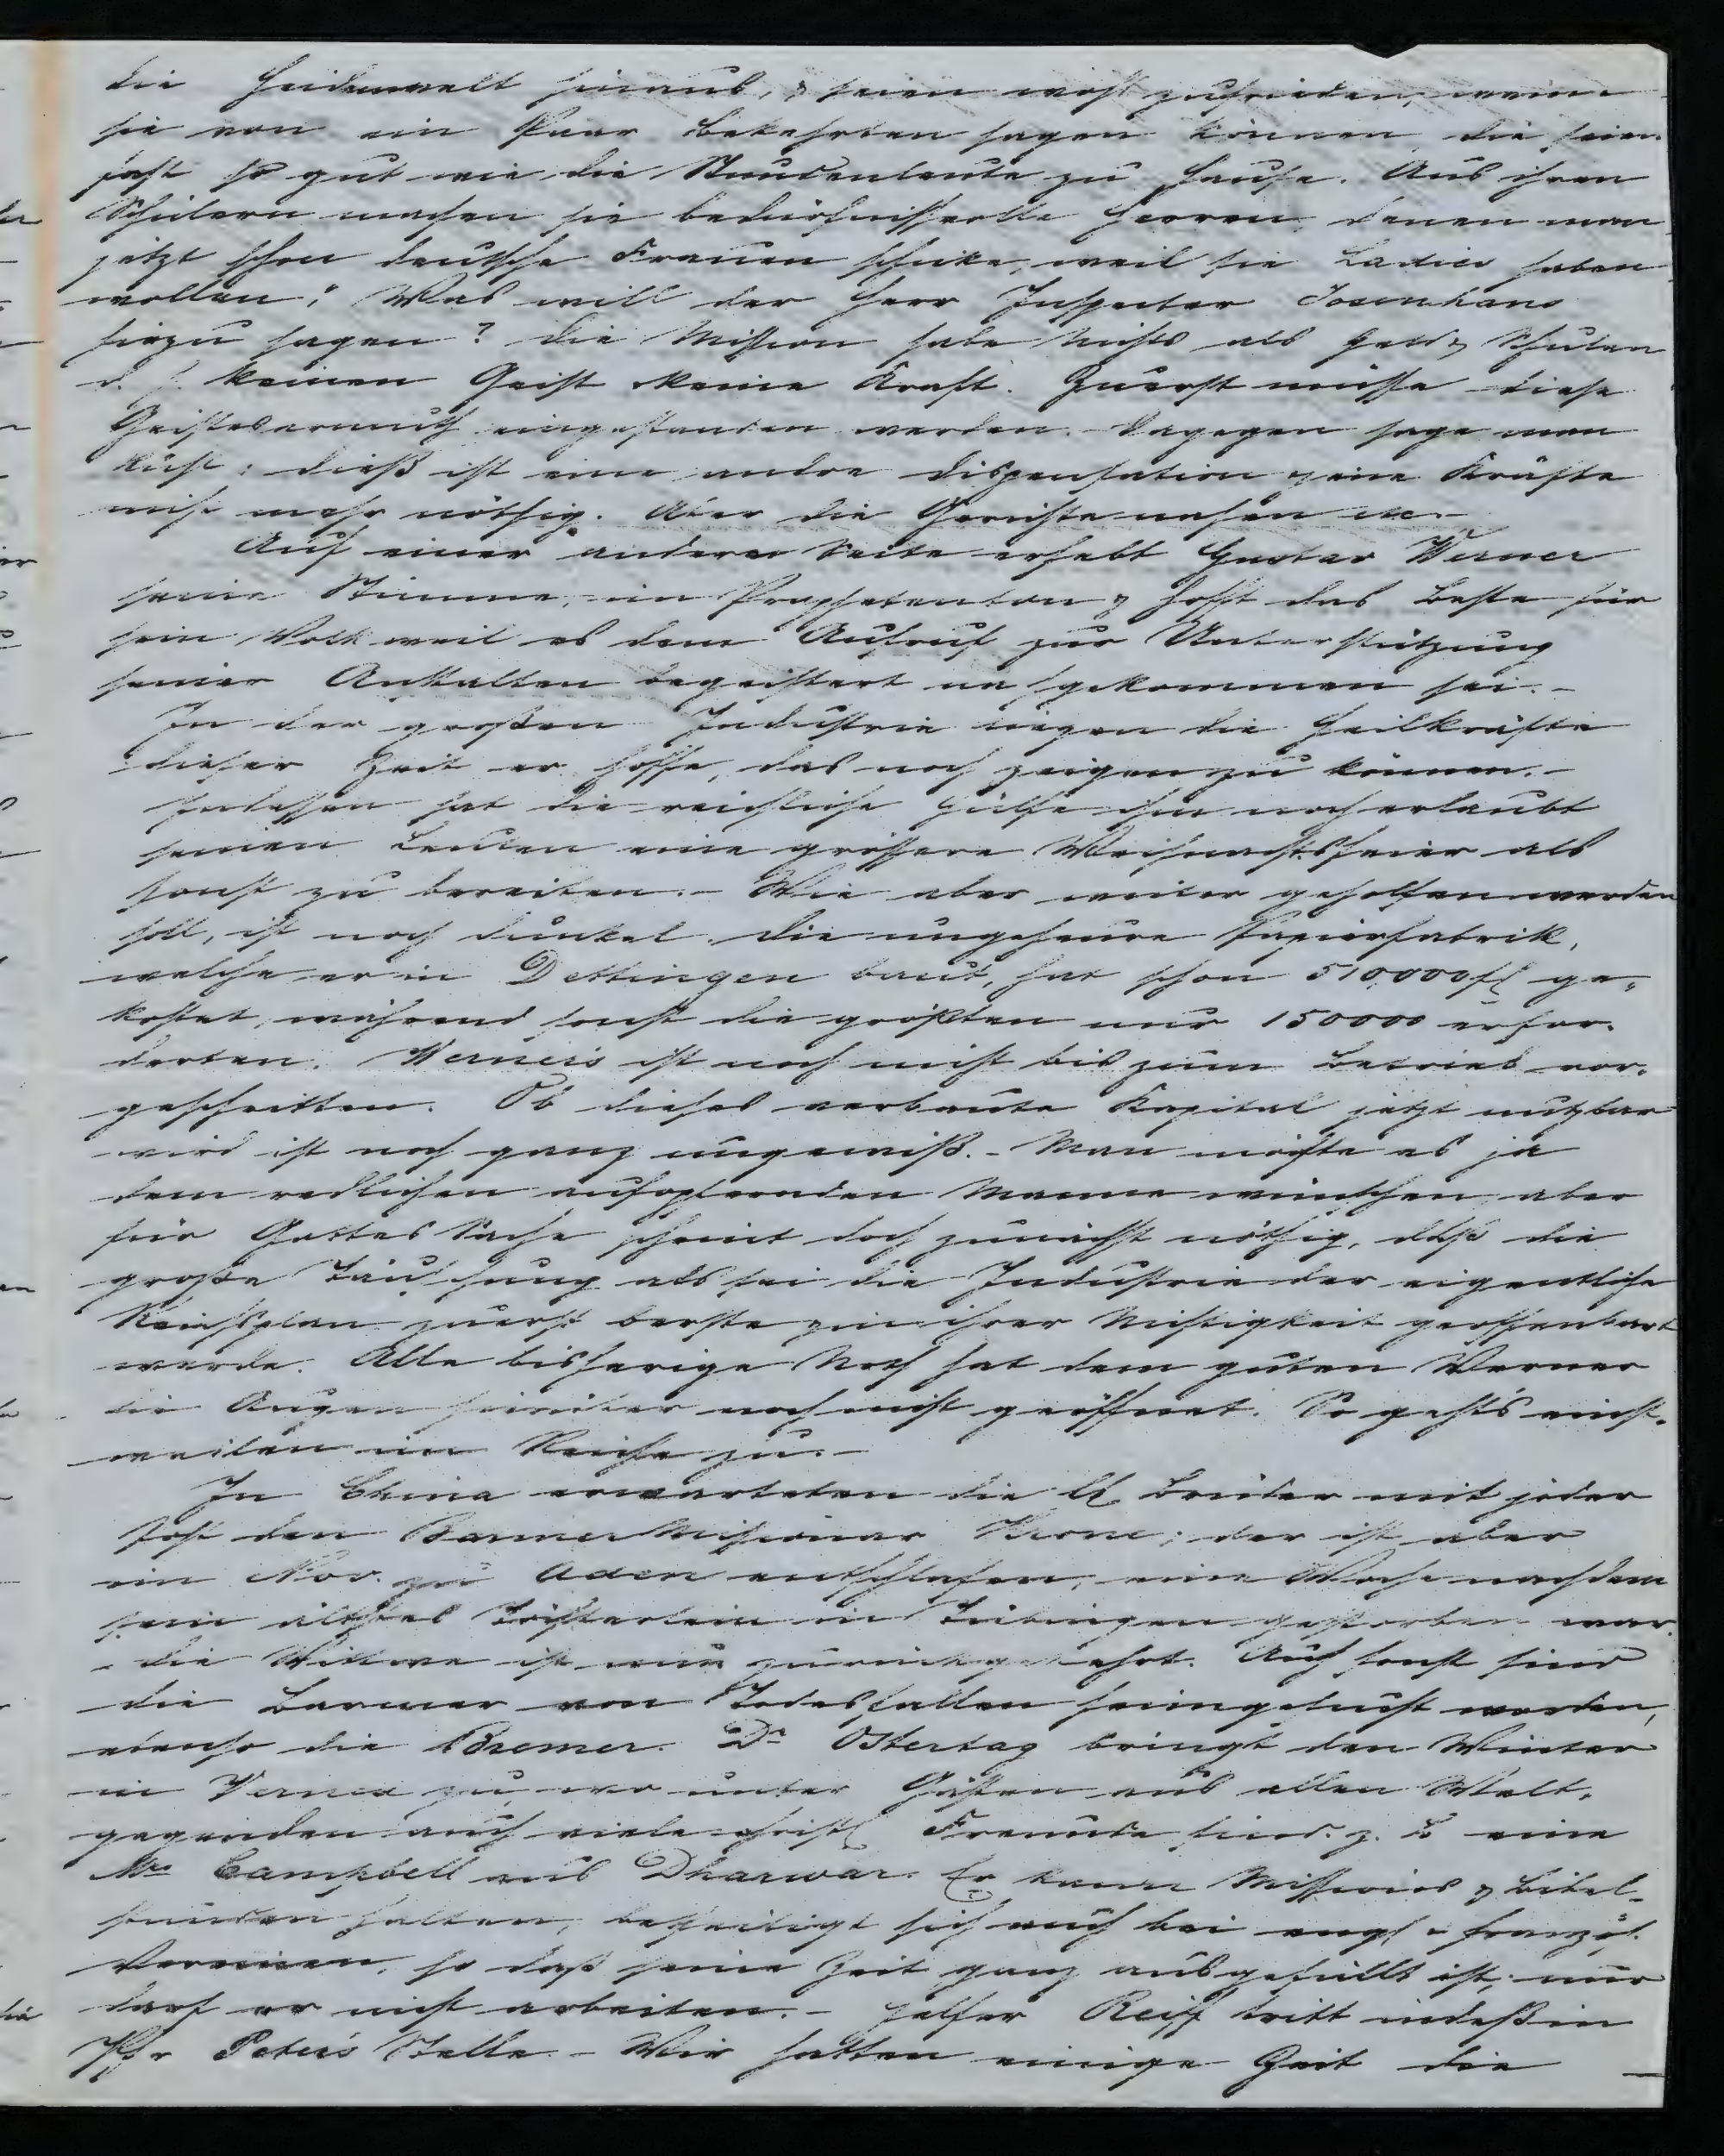 die Heidenwelt hinaus, & seien wohl zufrieden, wenn
sie von ein Paar Bekehrten sagen können, die seien
fast so gut wie die Stundenleute zu Hause. Aus ihren
Schülern machen sie bedürfnißvolle Herren, denen man
jetzt schon deutsche Frauen schicke, weil sie Ladies haben
wollen: Was will der Herr Inspector Josenhans
hiezu sagen? die Mission habe Nichts als Geld & Schulen
d. h. keinen Geist keine Kraft. Zuerst müsse diese
Geistesarmuth eingestanden werden. Dagegen sage man
kühl: dieß ist eine andre dispensation & jene Kräfte
nicht mehr nöthig. Aber die Gerichte nahen etc. -
Auf einer andern Seite erhebt Gustav Werner
seine Stimme, im Prophetenton & hofft das Beste für
sein Volk weil es dem Aufruf zur Unterstützung
seiner Anstalten begeistert nachgekommen sei. -
In der großen Industrie liegen die Heilkräfte
dieser Zeit er hoffe, das noch zeigen zu können. -
Indessen hat die reichliche Hülfe ihm noch erlaubt
seinen Leuten eine größere Weihnachtsfeier als
sonst zu bereiten. - Wie aber weiter geholfen werden
soll, ist noch dunkel. Die ungeheure Papierfabrik,
welche er in Dettingen baut, hat schon 510,000 fl ge-
kostet, während sonst die größten nur 150000 erfor-
derten. Werner's ist noch nicht bis zum Betrieb vor-
geschritten. Ob dieses verbaute Kapital jetzt nutzbar
wird ist noch ganz ungewiß. - Man möchte es ja
dem redlichen aufopfernden Manne wünschen aber
für Gottes Sache scheint doch zunächst nöthig, daß die
große Täuschung als sei die Industrie der eigentliche
Reichsplan zuerst berste & in ihrer Nichtigkeit geoffenbart
werde. Alle bisherige Noth hat dem guten Werner
die Augen hierüber noch nicht geöffnet. So geht's einst-
weilen im Reiche zu. -
In China erwarteten die lb Brüder mit jeder
Post den Barmer Missionar Krone; der ist aber
im Nov. zu Aden entschlafen, eine Woche nachdem
sein ältestes Töchterlein in Tübingen gestorben war.
- die Wittwe ist nun zurückgekehrt. Auch sonst sind
die Barmer von Todesfällen heimgesucht worden,
ebenso die Bremer. Dr Ostertag bringt den Winter
in Vernex zu, wo unter Gästen aus allen Welt-
gegenden auch viele christl Freunde sind. z. B eine
Mrs Campbell aus Dharwar. Er kann Missions & Bibel-
stunden halten, betheiligt sich auch bei engl & französ.
Vereinen, so daß seine Zeit ganz ausgefüllt ist; nur
darf er nicht arbeiten. - Helfer Reiff tritt indeß in
Pfr Peter's Stelle. - Wir hatten einige Zeit die